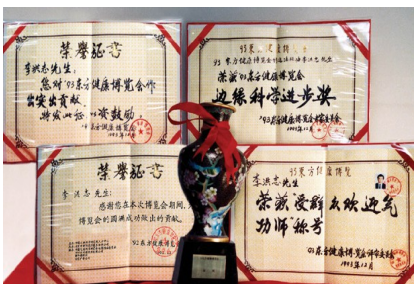 荣誉证书
李洪志先生:
您对'93东方健康博览会作
出突出贡献,
特发此证 以资鼓励
'93东方健康博览会
1993年12月
93东方健康博览会
荣获'93东方健康博览会
边缘科学进步奖
'93东方健康博览会
1993.12月
荣誉证书
李洪志先生:
感谢您在本次博览会期间,为
博览会的圆满成功做出的贡献。
'92东方健康博览会
93东方健康博览
李洪志先生
荣获受群众欢迎气
功师称号
'93东方健康博览会评审委员会
1993年12月